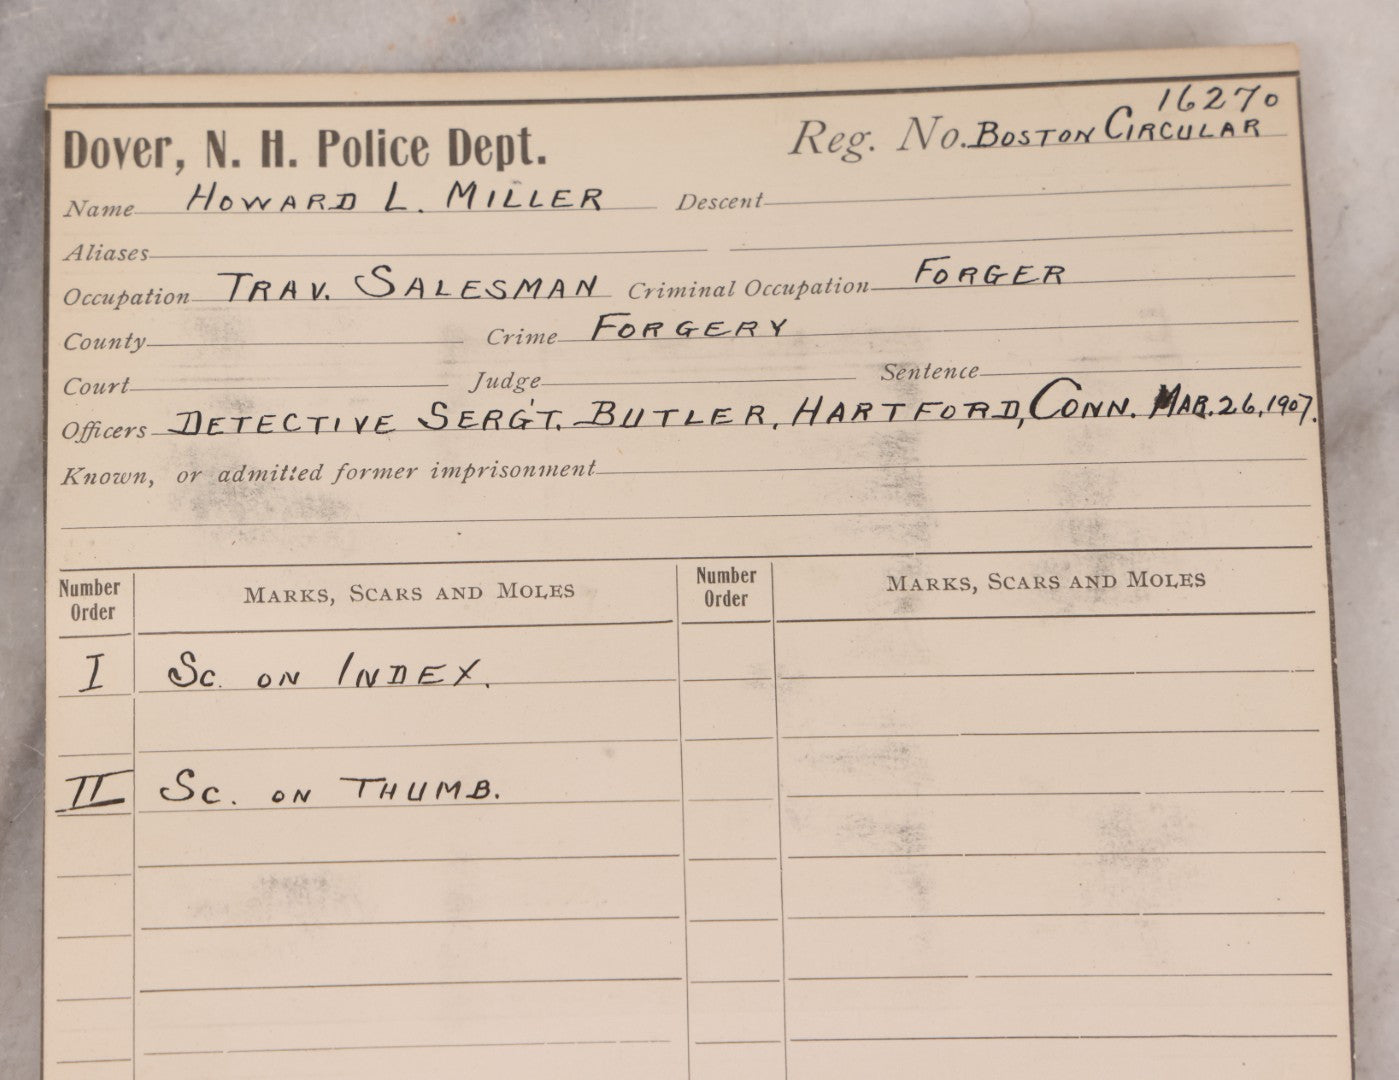 16270
Dover, N. H. Police Dept. Reg. No. BOSTON CIRCULAR
Name HOWARD L. MILLER Descent
Aliases
Occupation TRAV. SALESMAN Criminal Occupation FORGER
County Crime FORGERY
Court Judge Sentence
Officers DETECTIVE SERG'T. BUTLER, HARTFORD, CONN. MAR. 26, 1907.
Known, or admitted former imprisonment
Number Order MARKS, SCARS AND MOLES Number Order MARKS, SCARS AND MOLES
I Sc. ON INDEX.
II Sc. ON THUMB.